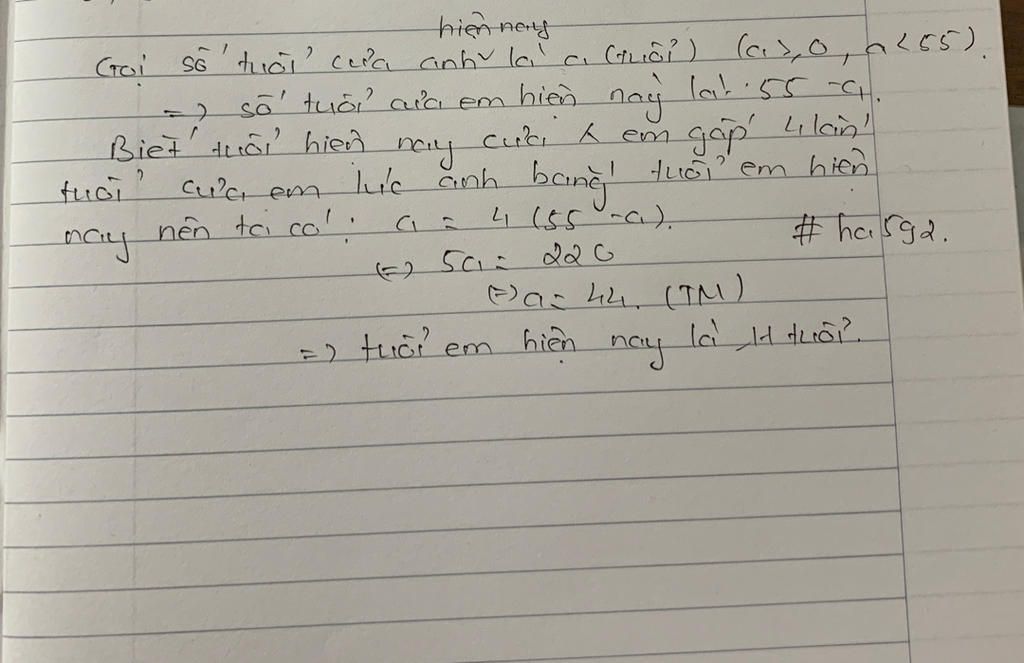 hiện nay
Gọi số tuổi của anh là a (tuổi) (a >, 0, a < 55).
=> số tuổi của em hiện nay là: 55 - a.
Biết tuổi hiện nay của A em gấp 4 lần
tuổi của em lúc anh bằng tuổi em hiện
nay nên ta có: a = 4 (55 - a).
# ha592.
<=> 5a = 220
<=> a = 44. (TM)
=> tuổi em hiện nay là 11 tuổi.